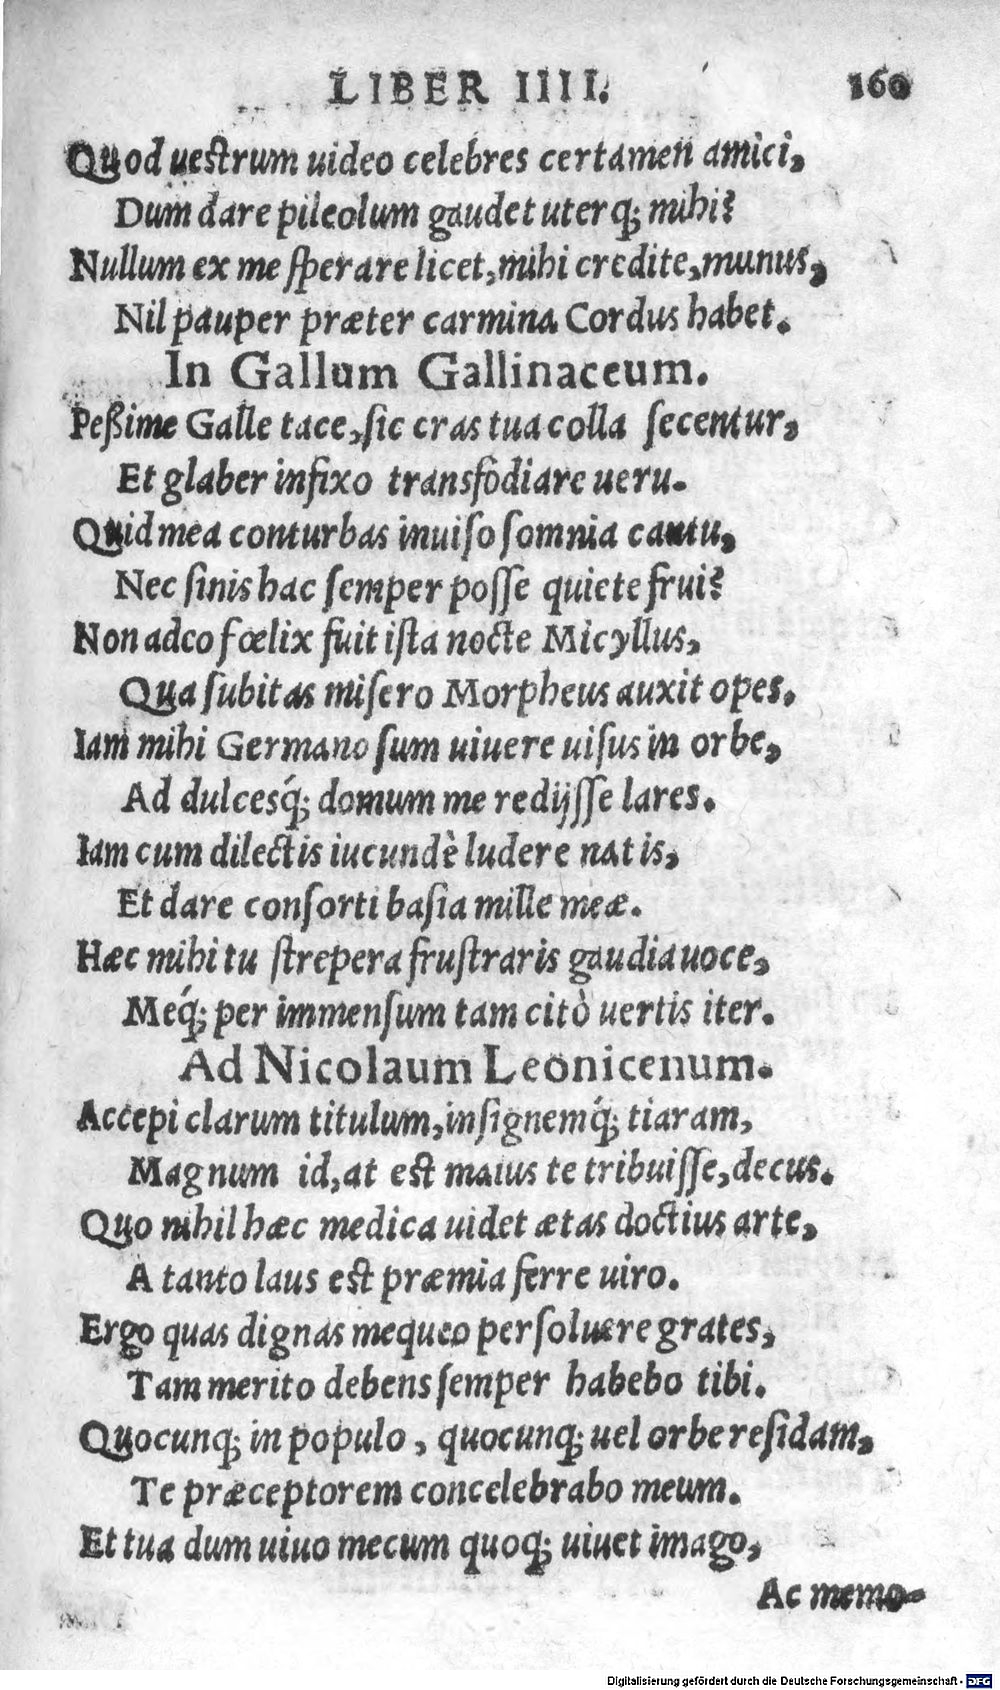 LIBER IIII. 160
Quod uestrum uideo celebres certamen amici,
Dum dare pileolum gaudet uterq; mihi?
Nullum ex me sperare licet, mihi credite, munus,
Nil pauper præter carmina Cordus habet.
In Gallum Gallinaceum.
Peßime Galle tace, sic cras tua colla secentur,
Et glaber infixo transfodiare ueru.
Quid mea conturbas inuiso somnia cantu,
Nec sinis hac semper posse quiete frui?
Non adeo fœlix fuit ista nocte Micyllus,
Qua subitas misero Morpheus auxit opes.
Iam mihi Germano sum uiuere uisus in orbe,
Ad dulcesq́; domum me redijsse lares.
Iam cum dilectis iucundè ludere natis,
Et dare consorti basia mille meæ.
Hæc mihi tu strepera frustraris gaudia uoce,
Meq́; per immensum tam citò uertis iter.
Ad Nicolaum Leonicenum.
Accepi clarum titulum, insignemq́; tiaram,
Magnum id, at est maius te tribuisse, decus.
Quo nihil hæc medica uidet ætas doctius arte,
A tanto laus est præmia ferre uiro.
Ergo quas dignas nequeo persoluere grates,
Tam merito debens semper habebo tibi.
Quocunq; in populo, quocunq; uel orbe residam,
Te præceptorem concelebrabo meum.
Et tua dum uiuo mecum quoq; uiuet imago,
Ac memo-
Digitalisierung gefördert durch die Deutsche Forschungsgemeinschaft - DFG